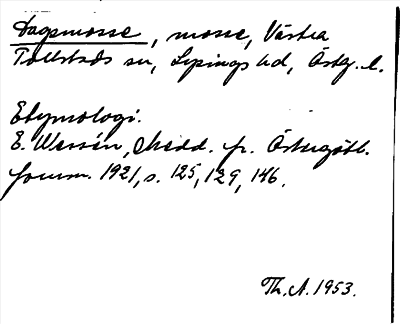 Dagsmosse, mosse, Västra
Tollstads sn, Lysings hd, Östg. l.
Etymologi.
E. Wessén, Medd. fr. Östergötl.
fornm. 1921, s. 125, 129, 146.
Th. A. 1953.